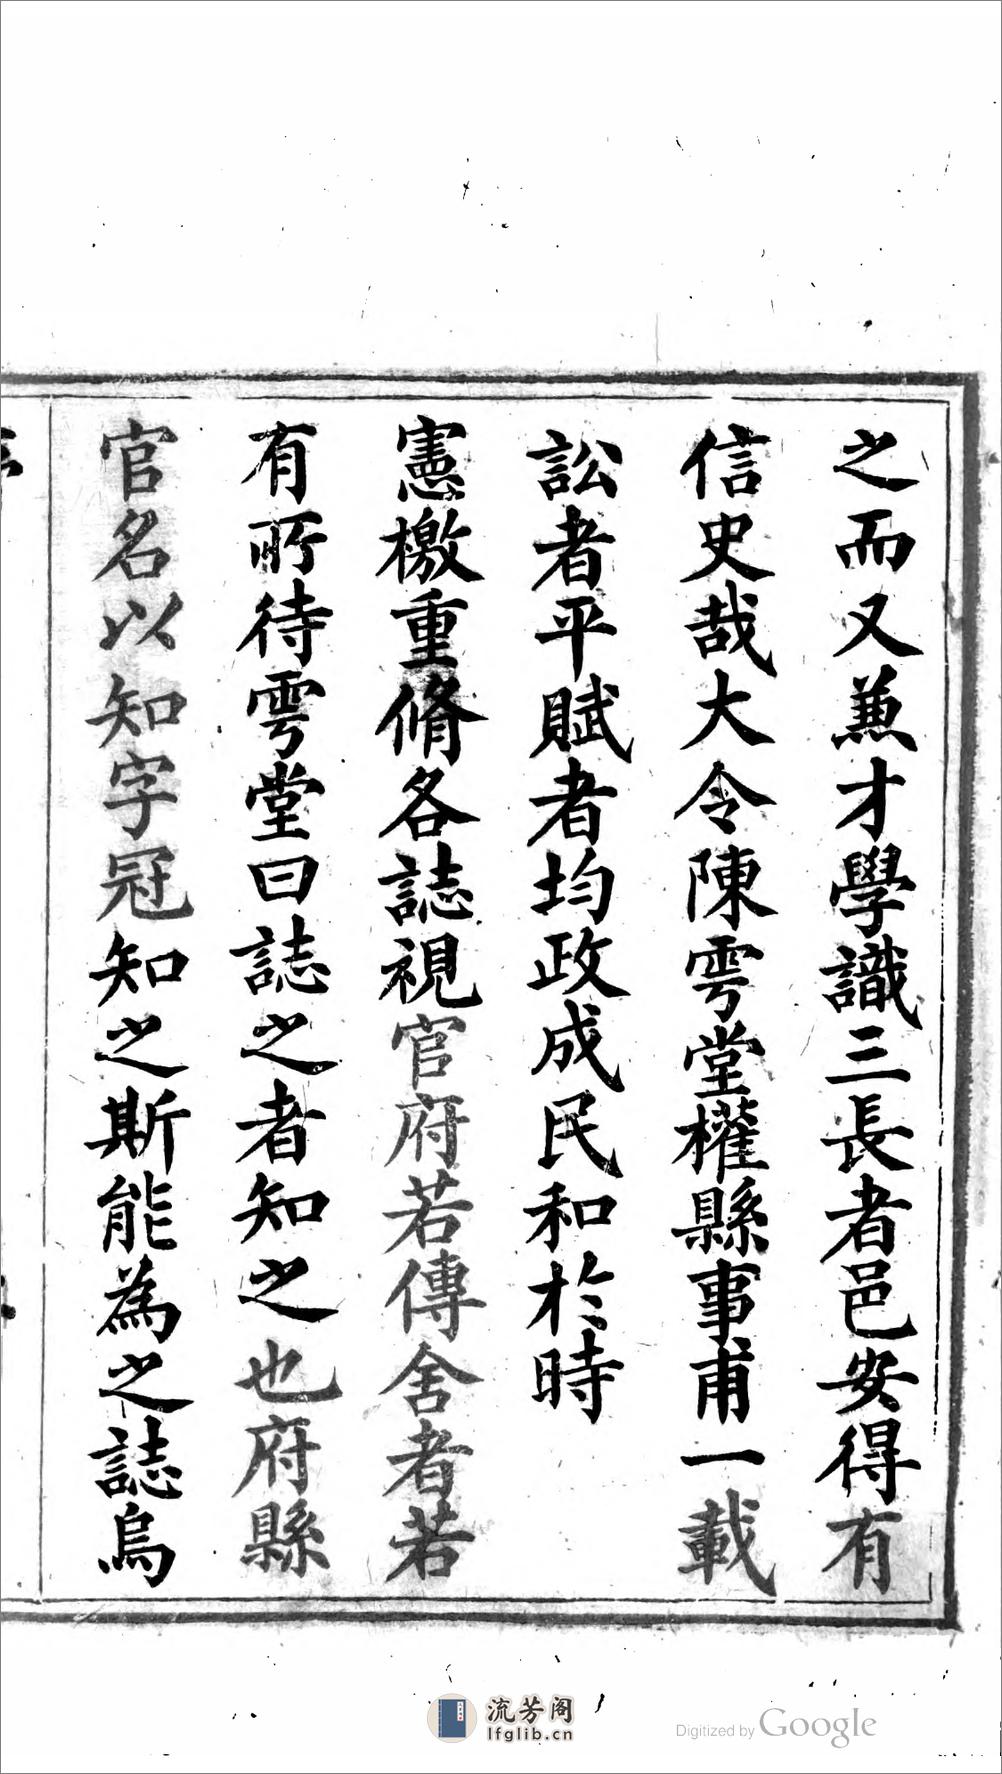 之而又兼才學識三長者邑安得有
信史哉大令陳雩堂權縣事甫一載
訟者平賦者均政成民和於時
憲檄重脩各誌視官府若傳舍者若
有所待雩堂曰誌之者知之也府縣
官名以知字冠知之斯能為之誌烏
流芳阁
lfglib.cn
Digitized by Google